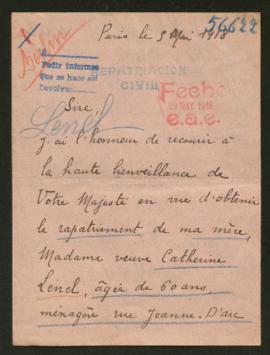 Paris le 5 Mai 1918
56622
Berlin
A
Pedir informes
Que se hace así
Devolver
REPATRIACIÓN
CIVIL
Fecho
29 MAY. 1918
e.a.e.
Sire,
Lenel
j'ai l'honneur de recourir à
la haute bienveillance de
Votre Majesté en vue d'obtenir
le rapatriement de ma mère,
Madame veuve Catherine
Lenel, âgée de 60 ans,
ménagère rue Jeanne-D'arc